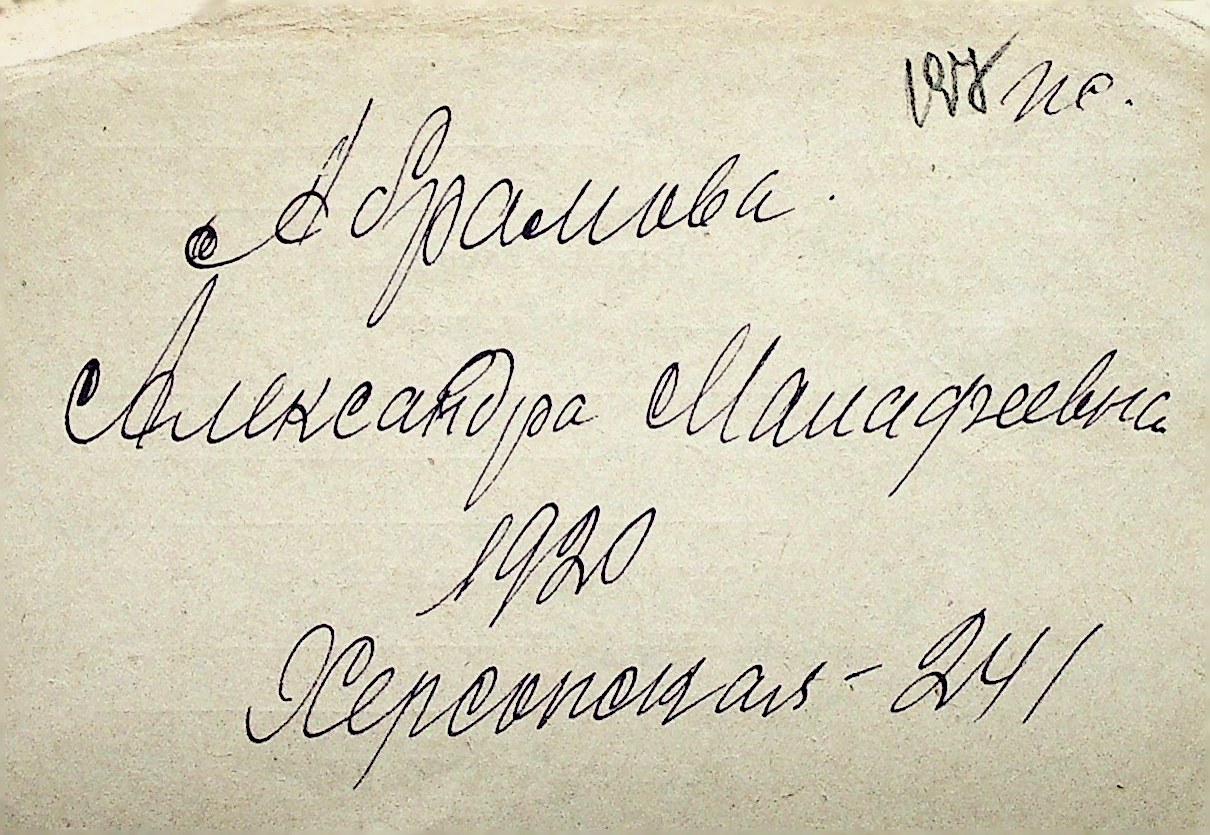 Абрамова.
Александра Малафеевна
1920
Херсонская - 241